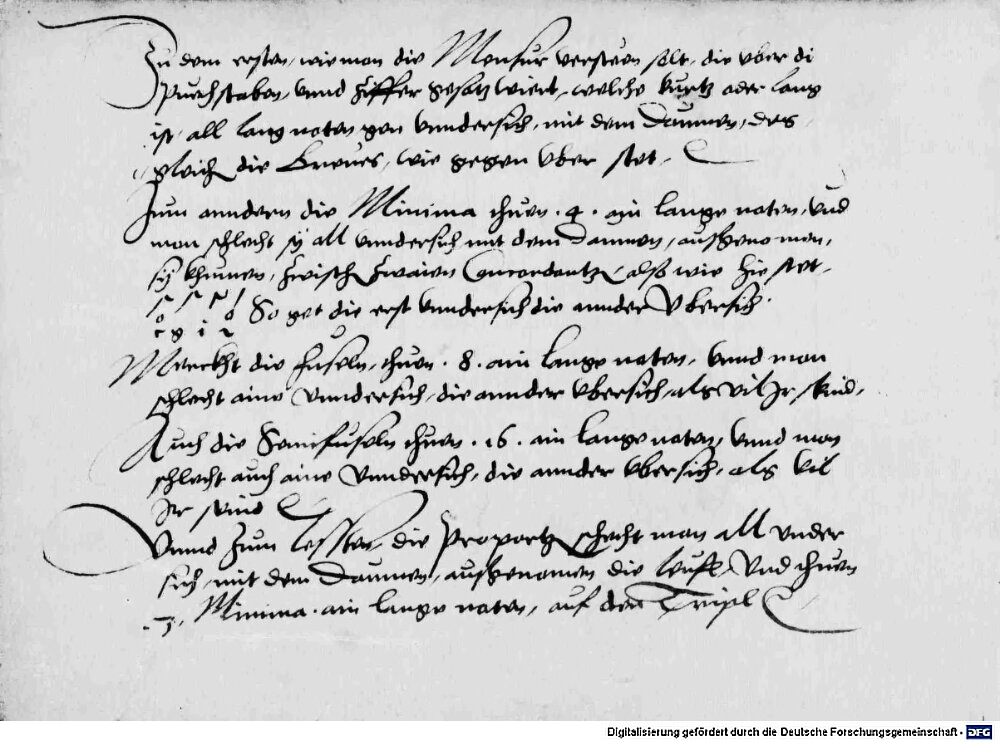 Zu dem ersten, wie man die Mensur versteen solt, die vber di
Puechstaben, vnnd Ziffer gesatz wiert, welche kurtz oder lang
ist, all lang noten gen vnndersich, mit dem Daumen, des
gleich die Breues, wie gegen vber stet.
Zum anndern die Minima thuen .4. ain lange noten, vnd
man schlecht sy all vnndersich mit dem Daumen, ausgenomen,
sy khumen, Zwisch Zwaien Concordantz, also wie hie stet.
c g i 2 So get die erst vnndersich die annder vbersich.
Merckht die fuseln, thuen .8. ain lange noten, vnnd man
schlecht aine vnndersich, die annder vbersich, als vil Jr seind,
Auch die Semifuseln thuen .16. ain lange noten, vnnd man
schlecht auch aine vnndersich, die annder vbersich, als vil
Jr seind
Vnnd Zum lessten, die Proportz schlecht man all vnder
sich, mit dem Daumen, ausgenomen die leuff, vnd thuen
.3. Minima. ain lange noten, auf den Tripl
Digitalisierung gefördert durch die Deutsche Forschungsgemeinschaft - DFG